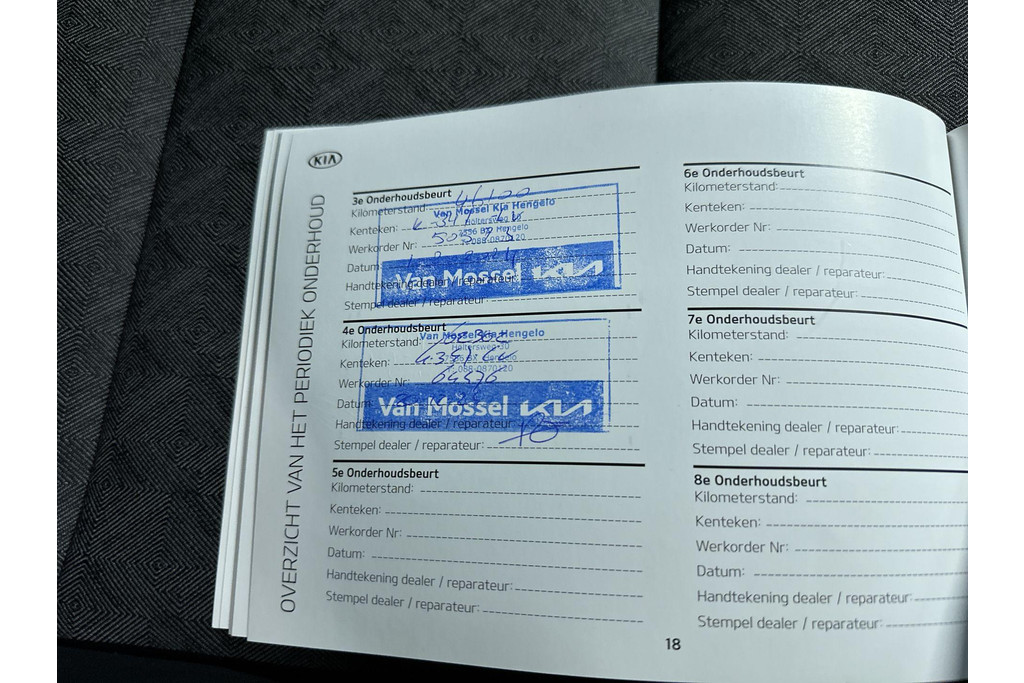 KIA
OVERZICHT VAN HET PERIODIEK ONDERHOUD
3e Onderhoudsbeurt
Kilometerstand:
Kenteken:
Werkorder Nr:
Datum
Handtekening dealer / reparateur:
Stempel dealer / reparateur:
Van Mossel Kia Hengelo
Haltersweg 30
Hengelo
T. 088-0870120
Van Mossel KIA
4e Onderhoudsbeurt
Kilometerstand:
Kenteken:
Werkorder Nr:
64576
Datum
Handtekening dealer / reparateur:
Stempel dealer / reparateur:
Van Mossel Kia Hengelo
Haltersweg 30
Hengelo
T. 088-0870120
Van Mossel KIA
5e Onderhoudsbeurt
Kilometerstand:
Kenteken:
Werkorder Nr:
Datum:
Handtekening dealer / reparateur:
Stempel dealer / reparateur:
6e Onderhoudsbeurt
Kilometerstand:
Kenteken:
Werkorder Nr:
Datum:
Handtekening dealer / reparateur:
Stempel dealer / reparateur:
7e Onderhoudsbeurt
Kilometerstand:
Kenteken:
Werkorder Nr:
Datum:
Handtekening dealer / reparateur:
Stempel dealer / reparateur:
8e Onderhoudsbeurt
Kilometerstand:
Kenteken:
Werkorder Nr:
Datum:
Handtekening dealer / reparateur:
Stempel dealer / reparateur:
18